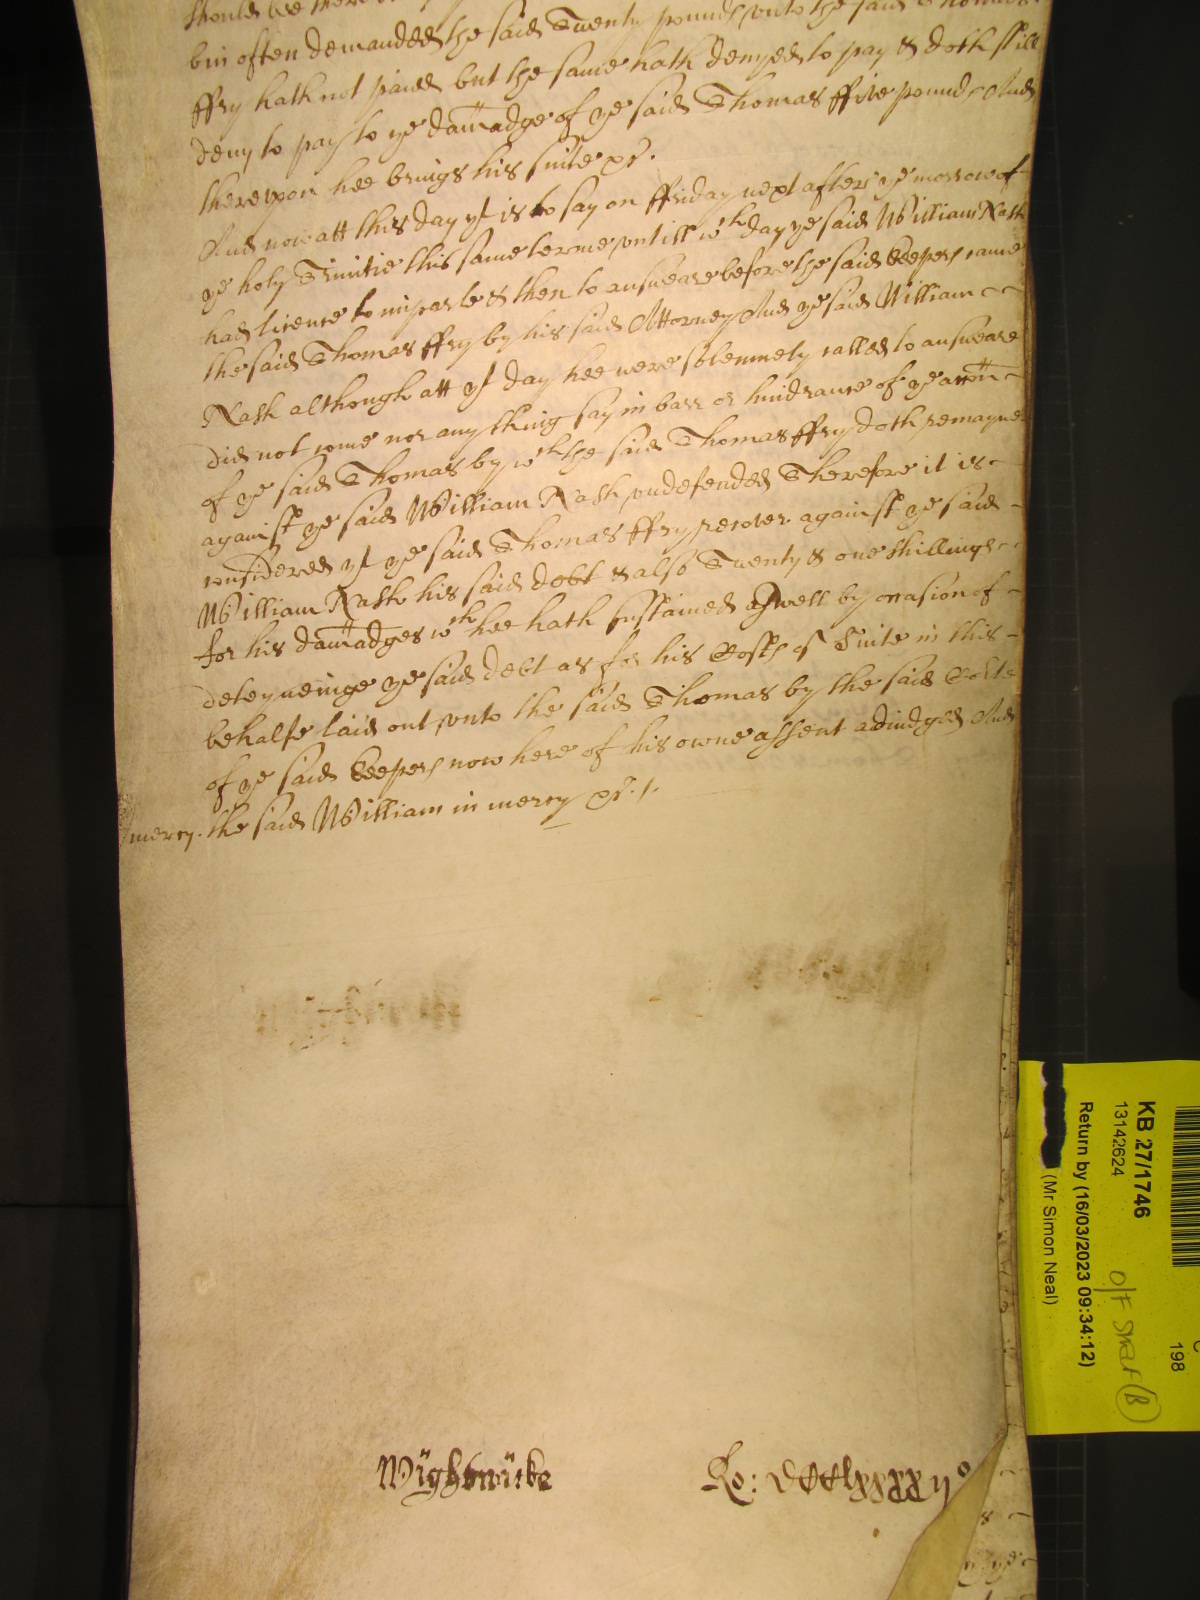 should bee there
bin often demanded the said Twenty pounds vnto the said Thomas
ffry hath not paied but the same hath denyed to pay & doth still
deny to pay to ye damadge of ye said Thomas ffive pounds And
therevpon hee brings his suite &c.
And now att this day yt is to say on ffriday next after ye morrow of
ye holy Trinitie this same terme vntill wch day ye said William Nash
had licence to imparle & then to answeare before the said Keepers came
the said Thomas ffry by his said Attorney And ye said William
Nash although att yt day hee were solemnely called to answeare
did not come nor any thing say in barr or hindrance of ye accon
of ye said Thomas by wch the said Thomas ffry doth remayne
against ye said William Nash vndefended Therefore it is
considered yt ye said Thomas ffry recover against ye said
William Nash his said debt & also Twenty & one shillings
for his damadges wch hee hath sustained aswell by occasion of
deteyneinge ye said debt as for his Costs of Suite in this
behalfe laid out vnto the said Thomas by the said Corte
of ye said Keepers now here of his owne assent adiudged And
mercy. the said William in mercy &c.
Wightwicke
Ro: DCClxxxxijo
KB 27/1746
13142624
Return by (16/03/2023 09:34:12)
(Mr Simon Neal)
O/F Shelf (B)
198